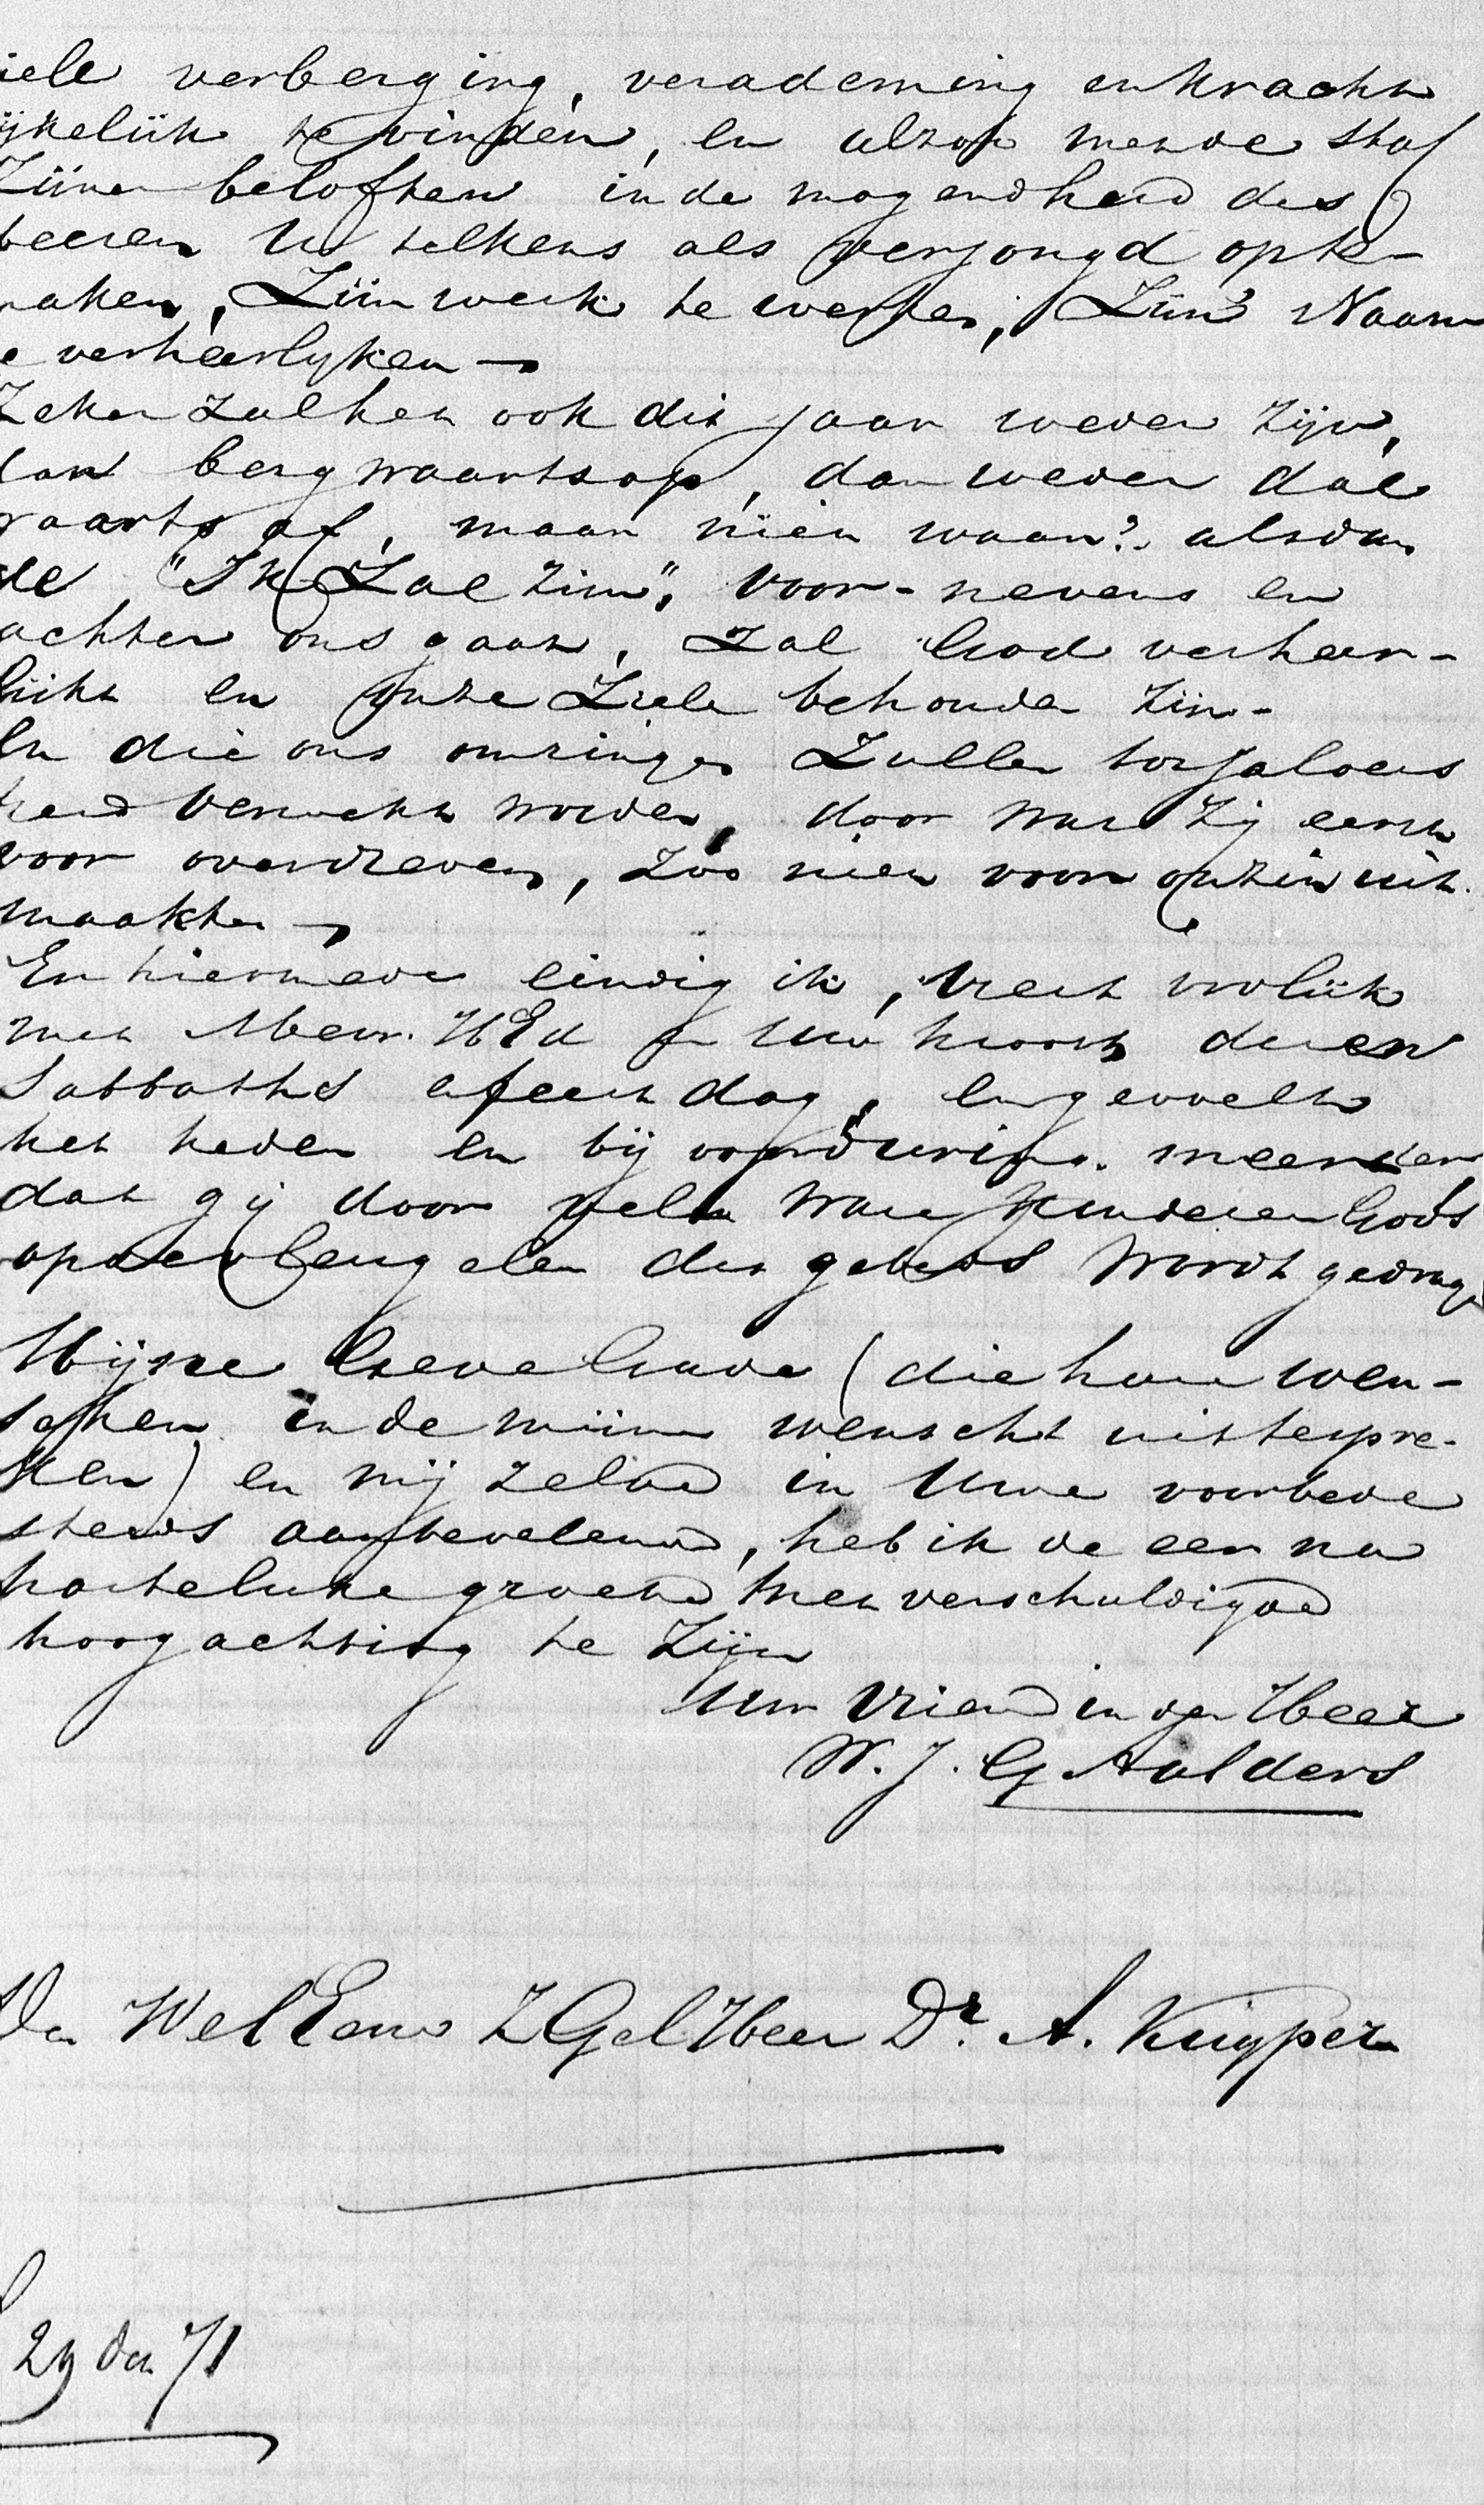 iele verberging, verademing en kracht
ijkelijk te vinden, en alzoo met de staf
Zijner beloften in de mogendheid des
heeren U telkens als verjongd op te
maken, Zijn werk te werken, Zijns Naam
e verheerlyken —
Zeker zal het ook dit jaar weder zijn,
dan bergwaarts op, dan weder dal
waarts af, maar niet waar? als dan
de "Ik Zal zijn", voor- nevens en
achter ons gaat, zal God verheer-
lijkt en onze Ziele behouden zijn -
En die ons omringen zullen tot jaloers
heid verwekt worden, door wat zij eerst
voor overdreven, zoo niet voor onzin uit
maakten —
En hiermede eindig ik, viert vrolijk
met Mevr. UEd en Uw kroost dezen
Sabbaths efeest dag, en gevoelt
het heden en bij voortduring meerder
dat gij door vele ware kinderen Gods
op de vleugelen des gebeds wordt gedragen
Mijne lieve Gade (die hare wen-
schen in de mijne wenscht uit te spre-
ken) en mij zelve in Uwe voorbede
steeds aanbevelend, heb ik de eer na
hartelijke groete met verschuldigde
hoogachting te Zijn
Uw Vriend in den Heer
W. J. G Aalders
Den WelEerw ZGel Heer Dr. A. Kuyper
29 dec 71